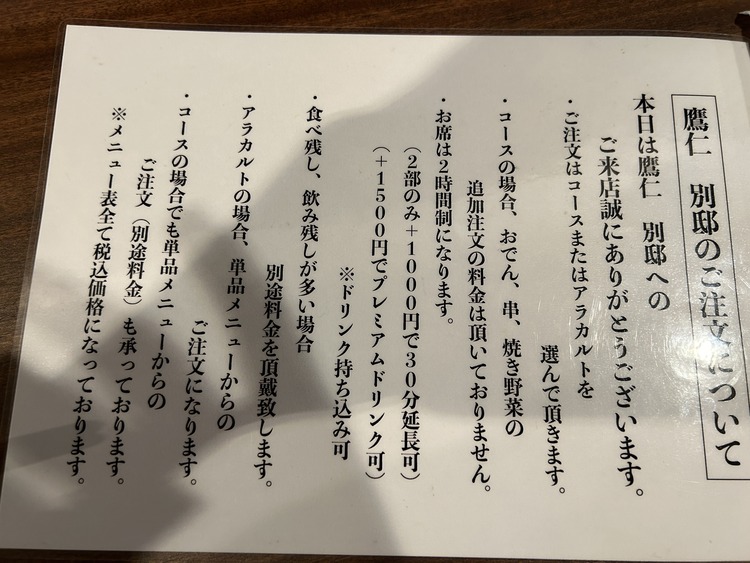 鷹仁　別邸のご注文について
本日は鷹仁　別邸への
ご来店誠にありがとうございます。
・ご注文はコースまたはアラカルトを
選んで頂きます。
・コースの場合、おでん、串、焼き野菜の
追加注文の料金は頂いておりません。
・お席は2時間制になります。
（2部のみ+1000円で30分延長可）
（+1500円でプレミアムドリンク可）
※ドリンク持ち込み可
・食べ残し、飲み残しが多い場合
別途料金を頂戴致します。
・アラカルトの場合、単品メニューからの
ご注文になります。
・コースの場合でも単品メニューからの
ご注文（別途料金）も承っております。
※メニュー表全て税込価格になっております。